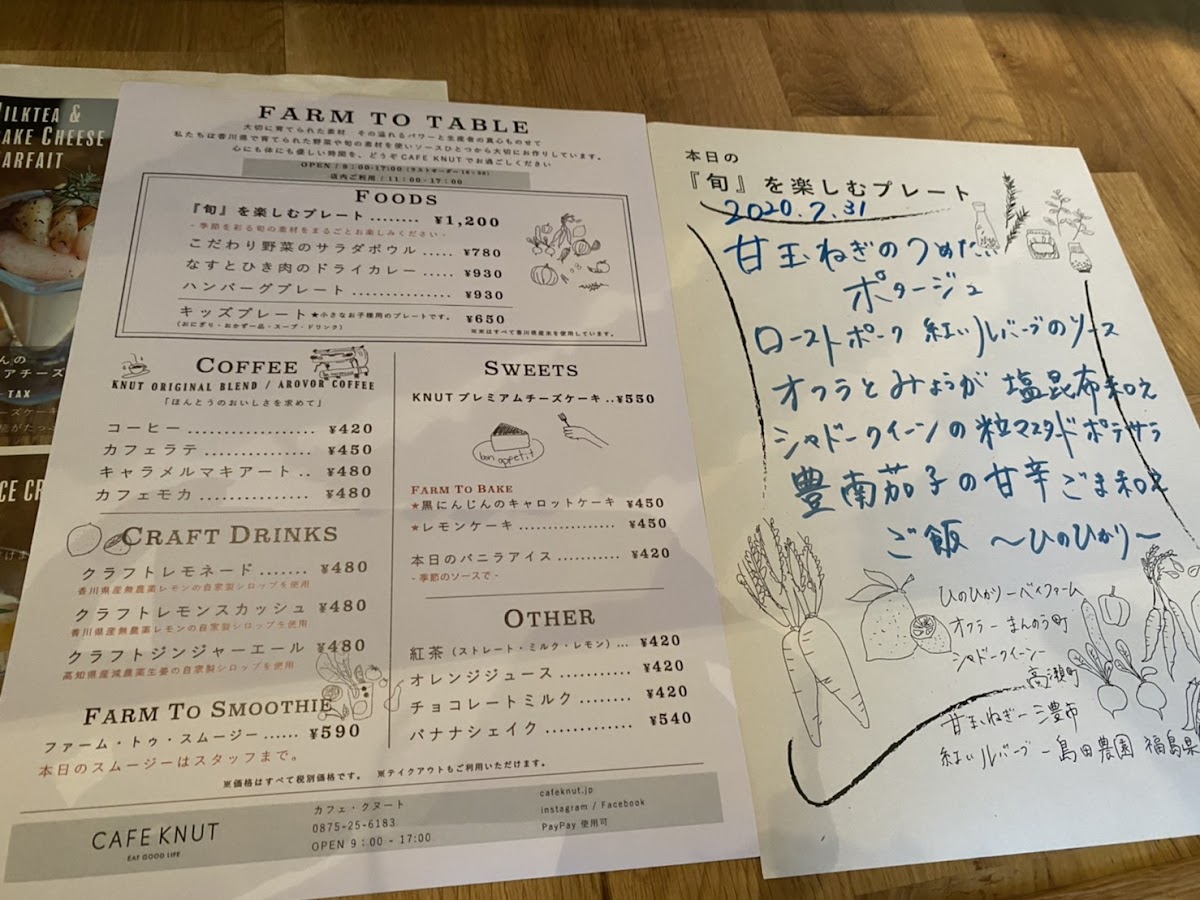 ILKTEA &
AKE CHEESE
ARFAIT
んの
アチーズ
- TAX
ーズケーキ
ICE CR
FARM TO TABLE
大切に育てられた素材 その溢れるパワーと生産者の真心ものせて
私たちは香川県で育てられた野菜や旬の素材を使いソースひとつから大切にお作りしています。
心にも体にも優しい時間を、どうぞ CAFE KNUT でお過ごしください
OPEN / 9：00-17:00 (ラストオーダー16：30)
店内ご利用 / 11：00-17：00
FOODS
『旬』を楽しむプレート ........ ¥1,200
- 季節を彩る旬の素材をまるごとお楽しみください -
こだわり野菜のサラダボウル ..... ¥780
なすとひき肉のドライカレー ..... ¥930
ハンバーグプレート ............... ¥930
キッズプレート ★小さなお子様用のプレートです。 ¥650
(おにぎり・おかず一品・スープ・ドリンク)
※米はすべて香川県産米を使用しています。
COFFEE
KNUT ORIGINAL BLEND / AROVOR COFFEE
「ほんとうのおいしさを求めて」
コーヒー .................. ¥420
カフェラテ ................ ¥450
キャラメルマキアート .. ¥480
カフェモカ ............... ¥480
CRAFT DRINKS
クラフトレモネード ....... ¥480
香川県産無農薬レモンの自家製シロップを使用
クラフトレモンスカッシュ ¥480
香川県産無農薬レモンの自家製シロップを使用
クラフトジンジャーエール ¥480
高知県産減農薬生姜の自家製シロップを使用
FARM TO SMOOTHIE
ファーム・トゥ・スムージー ...... ¥590
本日のスムージーはスタッフまで。
SWEETS
KNUT プレミアムチーズケーキ .. ¥550
bon appetit
FARM TO BAKE
★黒にんじんのキャロットケーキ ¥450
★レモンケーキ ................. ¥450
本日のバニラアイス ........... ¥420
- 季節のソースで -
OTHER
紅茶 (ストレート・ミルク・レモン) ... ¥420
オレンジジュース ............ ¥420
チョコレートミルク ......... ¥420
バナナシェイク .............. ¥540
※価格はすべて税別価格です。 ※テイクアウトもご利用いただけます。
CAFE KNUT
EAT GOOD LIFE
カフェ・クヌート
0875-25-6183
OPEN 9：00 - 17:00
cafeknut.jp
instagram / Facebook
PayPay 使用可
本日の
『旬』を楽しむプレート
2020.7.31
甘玉ねぎのつめたい
ポタージュ
ローストポーク 紅いルバーブのソース
オクラとみょうが 塩昆布和え
シャドークイーンの粒マスタードポテサラ
豊南茄子の甘辛ごま和え
ご飯 〜ひのひかり〜
ひのひかりーベイファーム
オクラー まんのう町
シャドークイーンー
高瀬町
甘玉ねぎー三豊市
紅いルバーブー島田農園 福島県